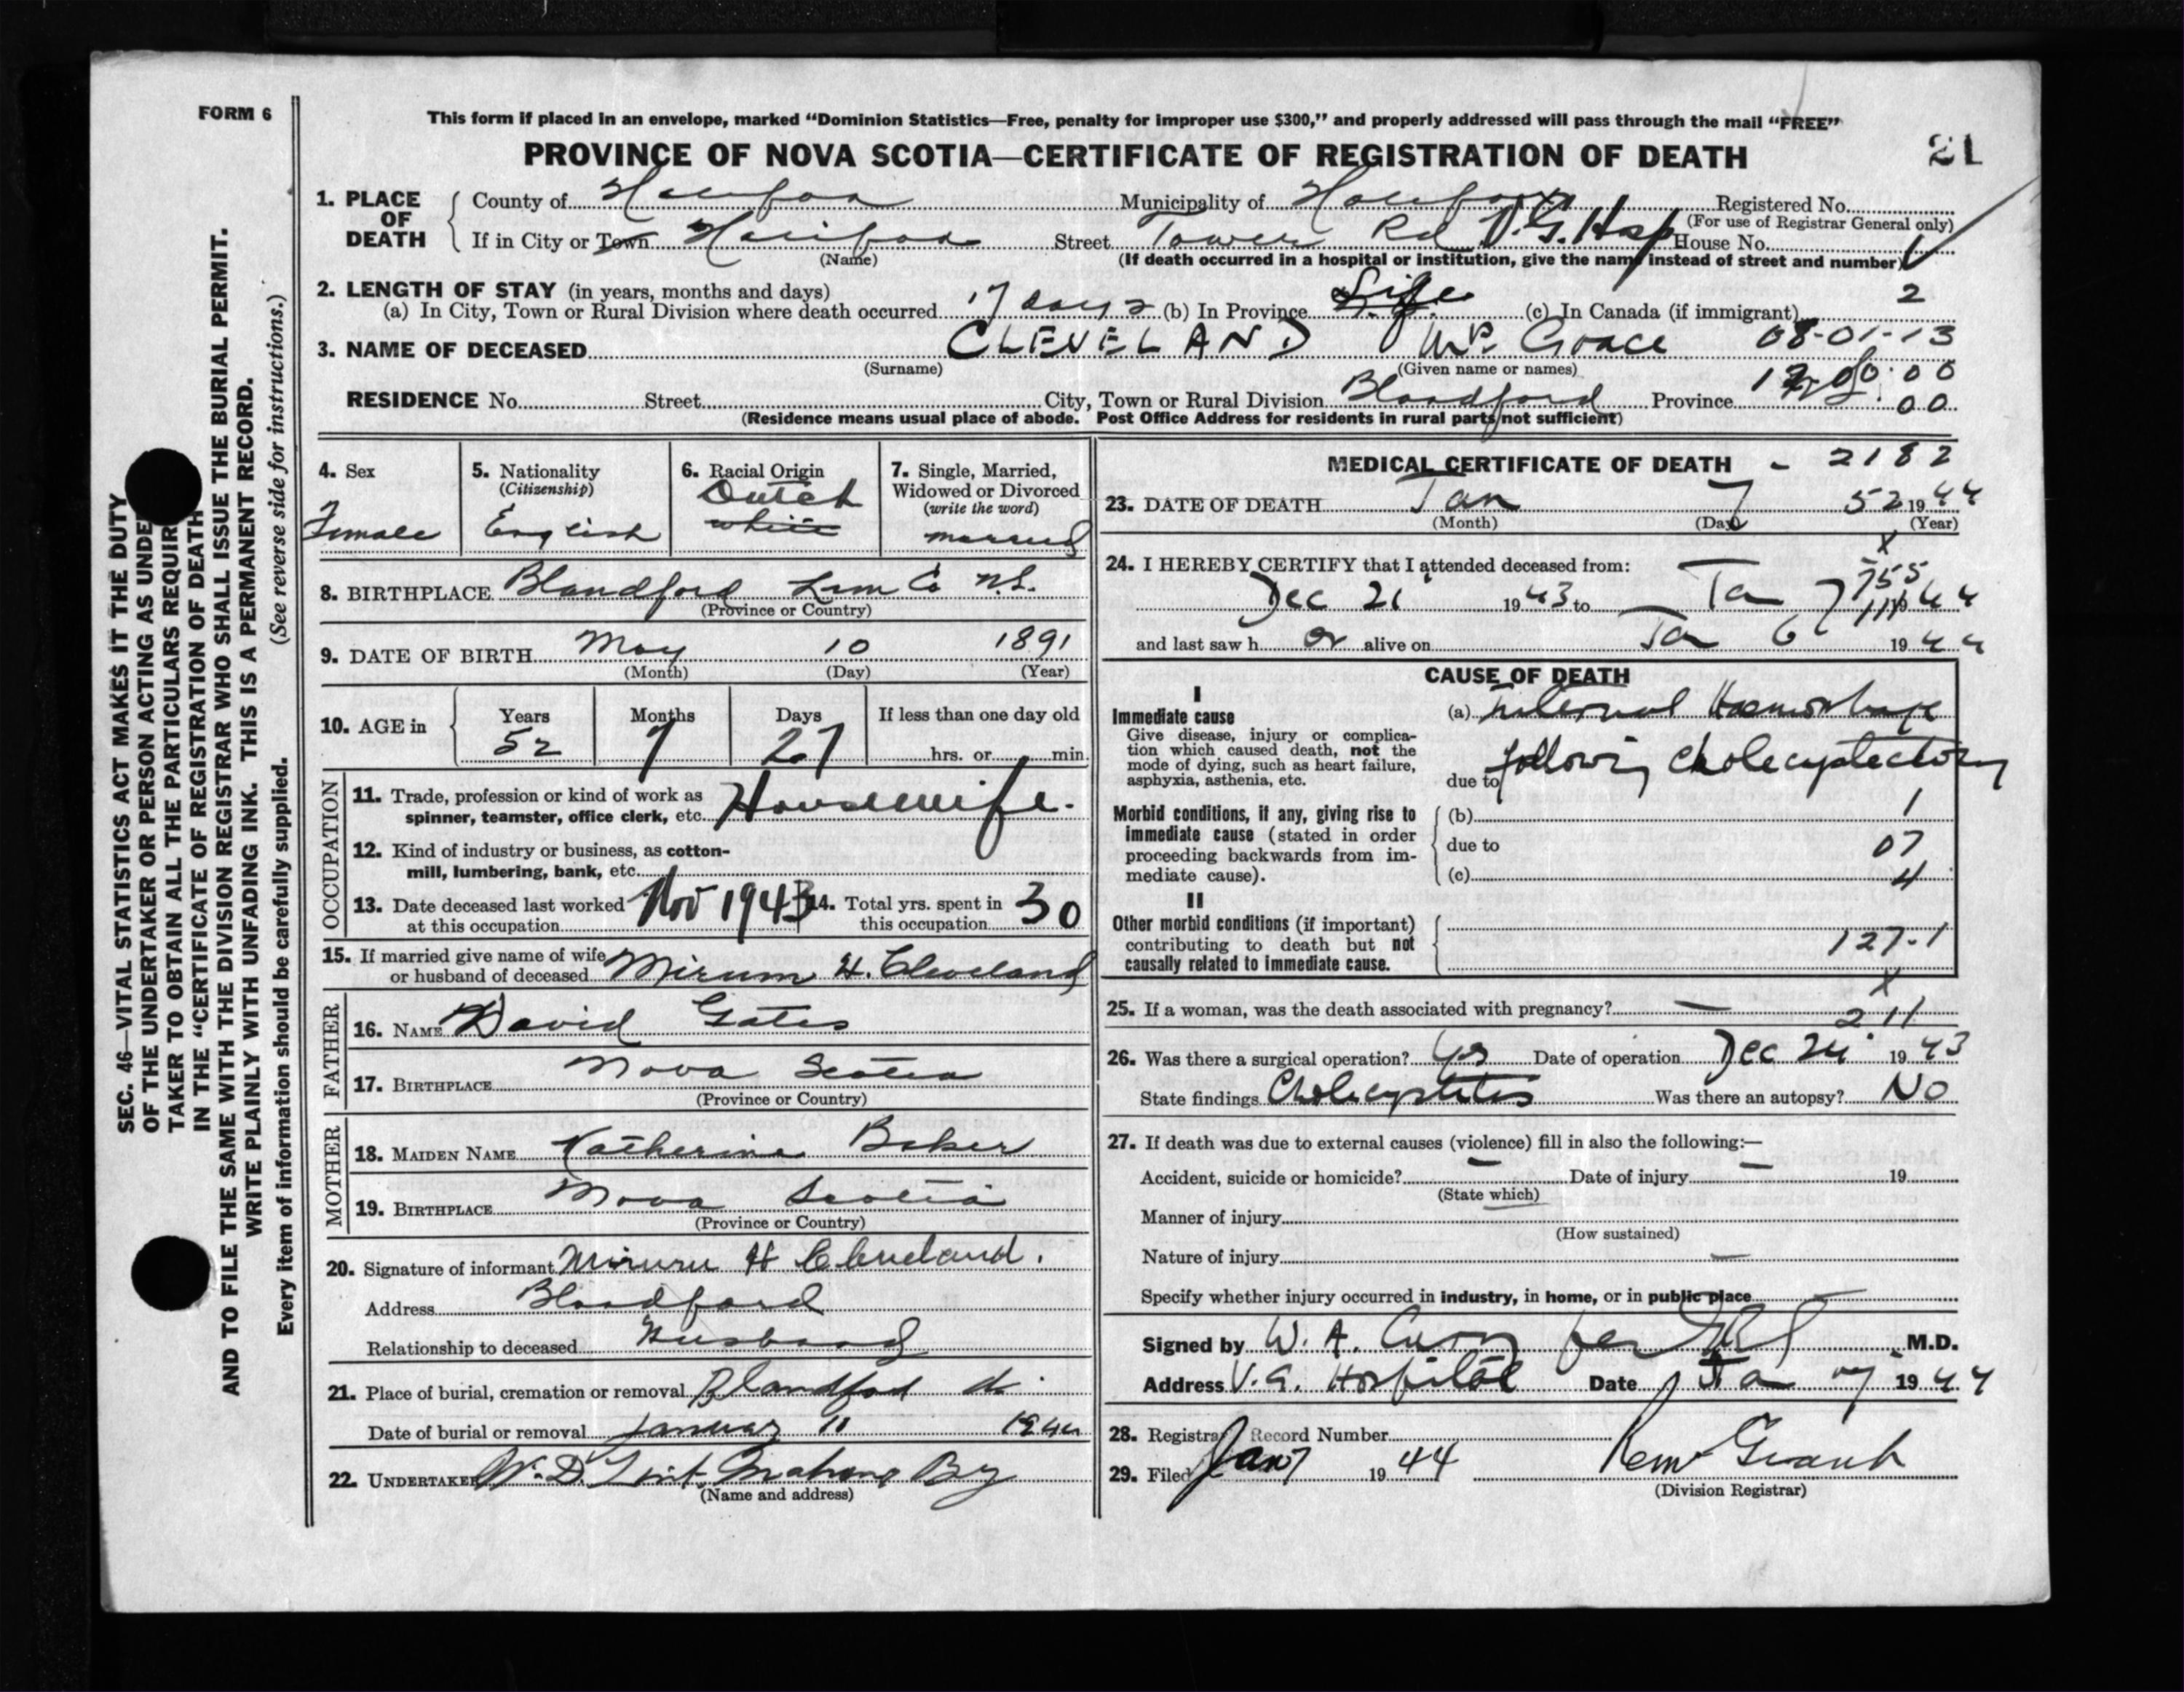 FORM 6
This form if placed in an envelope, marked “Dominion Statistics—Free, penalty for improper use $300,” and properly addressed will pass through the mail “FREE”
PROVINCE OF NOVA SCOTIA—CERTIFICATE OF REGISTRATION OF DEATH
21
1. PLACE OF DEATH
County of Halifax Municipality of Halifax Registered No.
(For use of Registrar General only)
If in City or Town Halifax Street Tower Rd V.G. Hosp House No.
(Name) (If death occurred in a hospital or institution, give the name instead of street and number)
2. LENGTH OF STAY (in years, months and days) 2
(a) In City, Town or Rural Division where death occurred 17 days (b) In Province Life (c) In Canada (if immigrant)
3. NAME OF DECEASED CLEVELAND Mrs. Grace 08-01-13
(Surname) (Given name or names)
RESIDENCE No. Street City, Town or Rural Division Blandford Province N.S. 00
(Residence means usual place of abode. Post Office Address for residents in rural parts not sufficient) 00
SEC. 46—VITAL STATISTICS ACT MAKES IT THE DUTY
OF THE UNDERTAKER OR PERSON ACTING AS UNDE
TAKER TO OBTAIN ALL THE PARTICULARS REQUIR
IN THE “CERTIFICATE OF REGISTRATION OF DEATH
AND TO FILE THE SAME WITH THE DIVISION REGISTRAR WHO SHALL ISSUE THE BURIAL PERMIT.
WRITE PLAINLY WITH UNFADING INK. THIS IS A PERMANENT RECORD.
Every item of information should be carefully supplied. (See reverse side for instructions.)
4. Sex
Female
5. Nationality
(Citizenship)
English
6. Racial Origin
Dutch
white
7. Single, Married,
Widowed or Divorced
(write the word)
married
8. BIRTHPLACE Blandford Lun Co N.S.
(Province or Country)
9. DATE OF BIRTH May 10 1891
(Month) (Day) (Year)
10. AGE in
Years Months Days If less than one day old
52 7 27 hrs. or min.
OCCUPATION
11. Trade, profession or kind of work as
spinner, teamster, office clerk, etc. Housewife.
12. Kind of industry or business, as cotton-
mill, lumbering, bank, etc.
13. Date deceased last worked
at this occupation Nov 1943
14. Total yrs. spent in
this occupation 30
15. If married give name of wife
or husband of deceased H. Cleveland
FATHER
16. NAME David Gates
17. BIRTHPLACE Nova Scotia
(Province or Country)
MOTHER
18. MAIDEN NAME Katherine Baker
19. BIRTHPLACE Nova Scotia
(Province or Country)
20. Signature of informant H Cleveland.
Address Blandford
Relationship to deceased Husband
21. Place of burial, cremation or removal Blandford
Date of burial or removal January 11 1944
22. UNDERTAKER W. D. Mahone Bay
(Name and address)
MEDICAL CERTIFICATE OF DEATH - 2182
23. DATE OF DEATH Jan 7 52 1944
(Month) (Day) (Year)
x
24. I HEREBY CERTIFY that I attended deceased from: 755
Dec 21 1943 to Jan 7 1944
and last saw h er alive on Jan 6 1944
CAUSE OF DEATH
I
Immediate cause
Give disease, injury or complica-
tion which caused death, not the
mode of dying, such as heart failure,
asphyxia, asthenia, etc.
(a) Internal Haemorrhage
due to following cholecystectomy
Morbid conditions, if any, giving rise to
immediate cause (stated in order
proceeding backwards from im-
mediate cause).
(b) 1
due to 07
(c) 4
II
Other morbid conditions (if important)
contributing to death but not
causally related to immediate cause.
127-1
x
25. If a woman, was the death associated with pregnancy? — 2.11
26. Was there a surgical operation? Yes Date of operation Dec 24 1943
State findings Cholecystitis Was there an autopsy? No
27. If death was due to external causes (violence) fill in also the following:—
Accident, suicide or homicide? — Date of injury — 19
(State which)
Manner of injury
(How sustained)
Nature of injury —
Specify whether injury occurred in industry, in home, or in public place
Signed by W. A. Curry per M.D.
Address V.G. Hospital Date Jan 7 1944
28. Registrar Record Number
29. Filed Jan 7 1944 Grant
(Division Registrar)